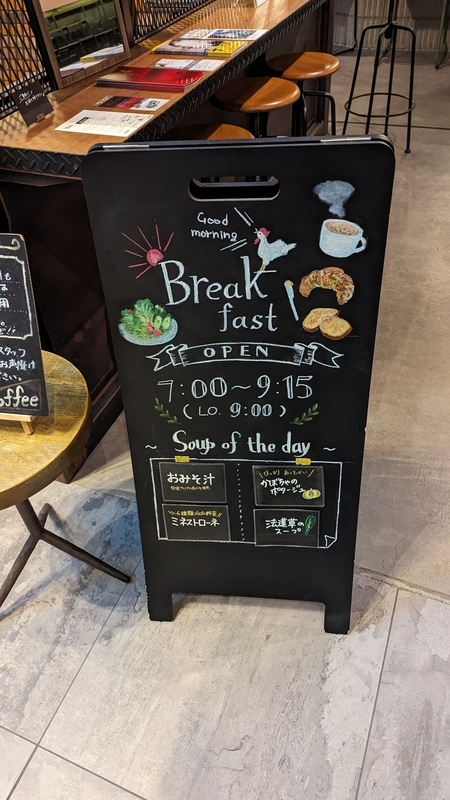 Good
morning
Break
fast
OPEN
7:00~9:15
(L.O. 9:00)
~ Soup of the day ~
おみそ汁
かぼちゃの
ポタージュ
ミネストローネ
法蓮草の
スープ
スタッフ
お声掛け
さい。
offee